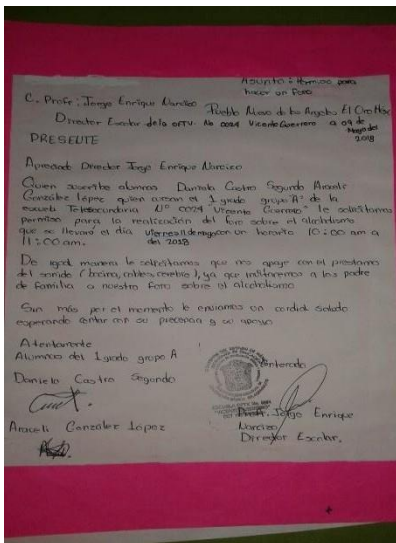 Asunto: Permiso para
hacer un Foro
Pueblo Nuevo de los Angeles El Oro Méx
a 09 de
Mayo del
2018
C. Profr: Jorge Enrique Narciso
Director Escolar de la OFTV. No 0024 Vicente Guerrero
PRESENTE
Apreciado Director Jorge Enrique Narciso
Quien suscribe alumnas Daniela Castro Segundo Araceli
González López quien cursan el 1 grado grupo "A" de la
escuela Telesecundaria N° 0024 "Vicente Guerrero" le solicitamos
permiso para la realización del foro sobre el alcoholismo
que se llevará el día viernes 11 de mayo con un horario 10:00 am a
11:00 am. del 2018
De igual manera le solicitamos que nos apoye con el prestamo
del sonido (bocina, cables, cerebro), ya que invitaremos a los padre
de familia a nuestro foro sobre el alcoholismo
Sin más por el momento le enviamos un cordial saludo
esperando contar con su presencia y su apoyo
Atentamente
Alumnas del 1 grado grupo A
Daniela Castro Segundo
Araceli González López
Enterado
Profr. Jorge Enrique
Narciso
Director Escolar.